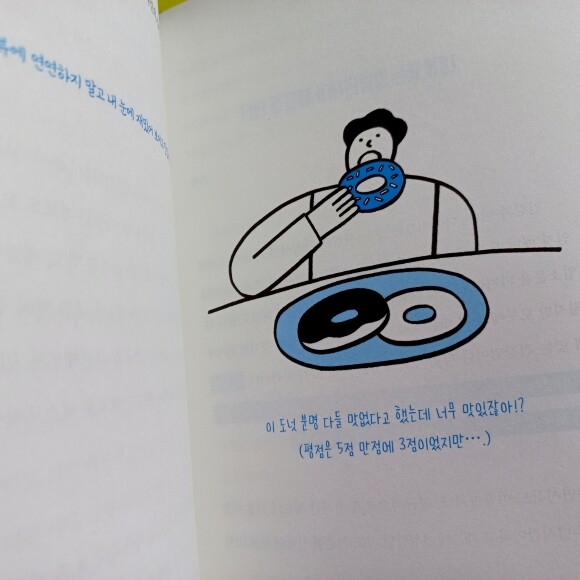 연연하지 말고 내 눈에
이 도넛 분명 다들 맛없다고 했는데 너무 맛있잖아!?
(평점은 5점 만점에 3점이었지만….)